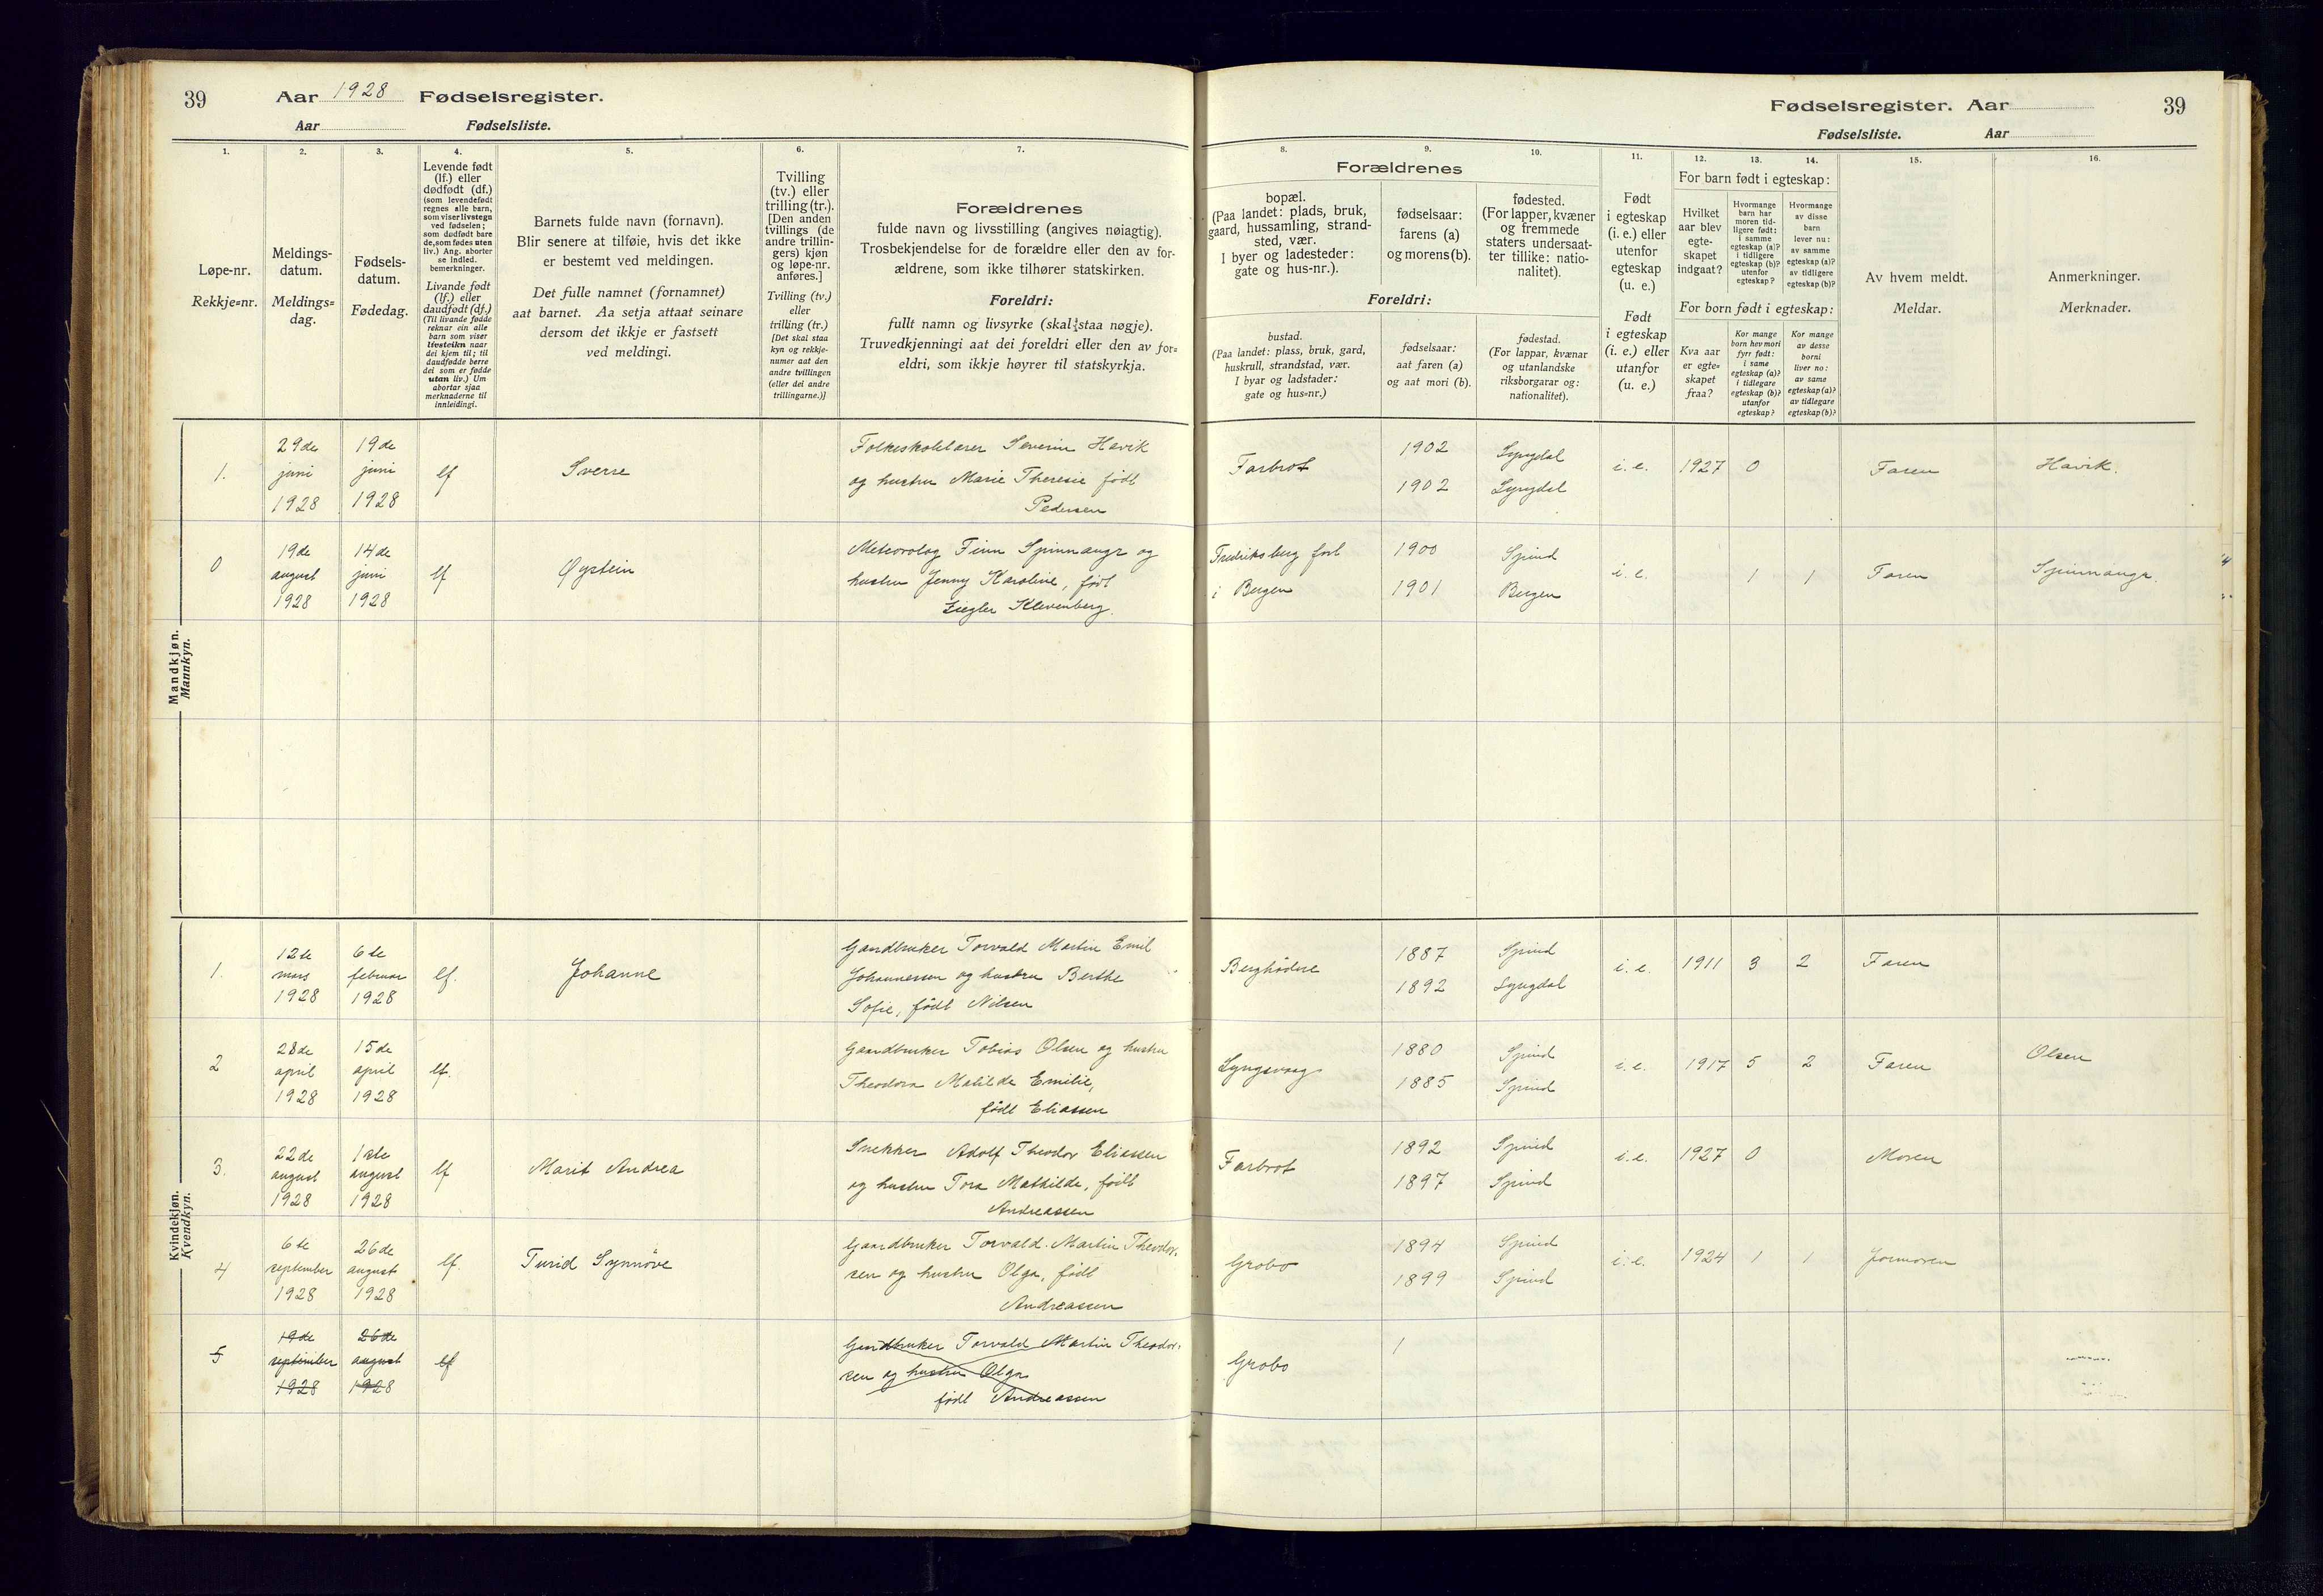 39
Aar 1928 Fødselsregister.
Aar Fødselsliste.
Fødselsregister. Aar
39
Fødselsliste. Aar
1.
Løpe-nr.
Rekkje=nr.
2.
Meldings-
datum.
Meldings=
dag.
3.
Fødsels-
datum.
Fødedag.
4.
Levende født
(lf.) eller
dødfødt (df.)
(som levendefødt
regnes alle barn,
som viser livstegn
ved fødselen;
som dødfødt bare
de, som fødes uten
liv.) Ang. aborter
se indled.
bemerkninger.
Livande født
(lf.) eller
daudfødt (df.)
(Til livande fødde
reknar ein alle
barn som viser
livsteikn naar
dei kjem til; til
daudfødde berre
dei som er fødde
utan liv.) Um
abortar sjaa
merknaderne til
innleidingi.
5.
Barnets fulde navn (fornavn).
Blir senere at tilføie, hvis det ikke
er bestemt ved meldingen.
Det fulle namnet (fornamnet)
aat barnet. Aa setja attaat seinare
dersom det ikkje er fastsett
ved meldingi.
6.
Tvilling
(tv.) eller
trilling (tr.).
[Den anden
tvillings (de
andre trillin-
gers) kjøn
og løpe-nr.
anføres.]
Tvilling (tv.)
eller
trilling (tr.)
[Det skal staa
kyn og rekkje-
numer aat den
andre tvillingen
(eller dei andre
trillingarne.)]
7.
Forældrenes
fulde navn og livsstilling (angives nøiagtig).
Trosbekjendelse for de forældre eller den av for-
ældrene, som ikke tilhører statskirken.
Foreldri:
fullt namn og livsyrke (skal staa nøgje).
Truvedkjenningi aat dei foreldri eller den av for=
eldri, som ikkje høyrer til statskyrkja.
8.
9.
10.
Forældrenes
bopæl.
(Paa landet: plads, bruk,
gaard, hussamling, strand-
sted, vær.
I byer og ladesteder:
gate og hus-nr.).
fødselsaar:
farens (a)
og morens (b).
fødested.
(For lapper, kvæner
og fremmede
staters undersaat-
ter tillike: natio-
nalitet).
Foreldri:
bustad.
(Paa landet: plass, bruk, gard,
huskrull, strandstad, vær.
I byar og ladstader:
gate og hus=nr.)
fødselsaar:
aat faren (a)
og aat mori (b).
fødestad.
(For lappar, kvænar
og utanlandske
riksborgarar og:
nationalitet).
11.
Født
i egteskap
(i. e.) eller
utenfor
egteskap
(u. e.)
Født
i egteskap
(i. e.) eller
utanfor
(u. e.)
12.
13.
14.
For barn født i egteskap:
Hvilket
aar blev
egte-
skapet
indgaat?
Hvormange
barn har
moren tid-
ligere født:
i samme
egteskap (a)?
i tidligere
egteskap (b)?
utenfor
egteskap?
Hvormange
av disse
barn
lever nu:
av samme
egteskap (a)?
av tidligere
egteskap (b)?
For born født i egteskap:
Kva aar
er egte=
skapet
fraa?
Kor mange
born hev mori
fyrr født:
i same
egteskap (a)?
i tidlegare
egteskap (b)?
utanfor
egteskap?
Kor mange
av desse
borni
liver no:
av same
egteskap (a)?
av tidlegare
egteskap (b)?
15.
Av hvem meldt.
Meldar.
16.
Anmerkninger.
Merknader.
Mandkjøn.
Mannkyn.
1.
29de
juni
1928
19de
juni
1928
lf
Sverre
Folkeskolelærer Severin Havik
og hustru Marie Theresie født
Pedersen
Farbrot
1902
1902
Lyngdal
Lyngdal
i. e.
1927
0
Faren
Havik.
0
19de
august
1928
14de
juni
1928
lf
Øystein
Meteorolog Finn Spinnangr og
hustru Jenny Karoline, født
Ziegler Klevenberg.
Fredriksberg fort
i Bergen
1900
1901
Spind
Bergen
i. e.
1
1
Faren
Spinnangr.
Kvindekjøn.
Kvendkyn.
1.
12te
mars
1928
6te
februar
1928
lf.
Johanne
Gardbruker Torvald Martin Emil
Johannessen og hustru Berthe
Sofie, født Nilsen
1887
1892
Spind
Lyngdal
i. e.
1911
3
2
Faren
2
28de
april
1928
15de
april
1928
lf.
Gaardbruker Tobias Olsen og hustru
Theodora Matilde Emilie,
født Eliassen
Lyngsvaag
1880
1885
Spind
Spind
i. e.
1917
5
2
Faren
Olsen
3.
22de
august
1928
1ste
august
1928
lf
Marit Andrea
Snekker Adolf Theodor Eliassen
og hustru Tora Mathilde, født
Andreassen
Farbrot
1892
1897
Spind
Spind
i. e.
1927
0
Moren
4
6te
september
1928
26de
august
1928
lf.
Turid Synnöve
Gaardbruker Torvald Martin Theodor-
sen og hustru Olga, født
Andreassen
Grobo
1894
1899
Spind
Spind
i. e.
1924
1
1
Jormoren
5
19de
september
1928
26de
august
1928
lf
Gardbruker Torvald Martin Theodor-
sen og hustru Olga
født Andreassen
Grobo
1